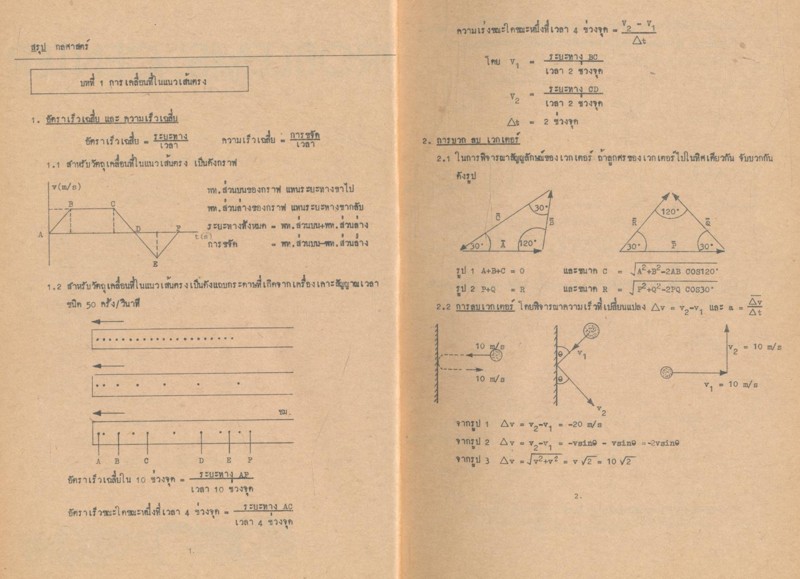 สรุป กลศาสตร์
บทที่ 1 การเคลื่อนที่ในแนวเส้นตรง
1. อัตราเร็วเฉลี่ย และ ความเร็วเฉลี่ย
อัตราเร็วเฉลี่ย = ระยะทาง / เวลา ความเร็วเฉลี่ย = การขจัด / เวลา
1.1 สำหรับวัตถุเคลื่อนที่ในแนวเส้นตรง เป็นดังกราฟ
v(m/s)
B C
A D F t(s)
E
พท.ส่วนบนของกราฟ แทนระยะทางขาไป
พท.ส่วนล่างของกราฟ แทนระยะทางขากลับ
ระยะทางทั้งหมด = พท.ส่วนบน+พท.ส่วนล่าง
การขจัด = พท.ส่วนบน-พท.ส่วนล่าง
1.2 สำหรับวัตถุเคลื่อนที่ในแนวเส้นตรงเป็นดังแถบกระดาษที่เกิดจากเครื่องเคาะสัญญาณเวลา
ชนิด 50 ครั้ง/วินาที
ซม.
A B C D E F
อัตราเร็วเฉลี่ยใน 10 ช่วงจุด = ระยะทาง AF / เวลา 10 ช่วงจุด
อัตราเร็วขณะใดขณะหนึ่งที่เวลา 4 ช่วงจุด = ระยะทาง AC / เวลา 4 ช่วงจุด
1.
ความเร่งขณะใดขณะหนึ่งที่เวลา 4 ช่วงจุด = v₂ - v₁ / △t
โดย v₁ = ระยะทาง BC / เวลา 2 ช่วงจุด
v₂ = ระยะทาง CD / เวลา 2 ช่วงจุด
△t = 2 ช่วงจุด
2. การบวก ลบ เวกเตอร์
2.1 ในการพิจารณาสัญลักษณ์ของเวกเตอร์ ถ้าลูกศรของเวกเตอร์ไปในทิศเดียวกัน จับบวกกัน
ดังรูป
30° C B 30° A 120°
120° R Q 30° P 30°
รูป 1 A+B+C = 0 และขนาด C = √A²+B²-2AB COS120°
รูป 2 P+Q = R และขนาด R = √P²+Q²-2PQ COS30°
2.2 การลบเวกเตอร์ โดยพิจารณาความเร็วที่เปลี่ยนแปลง △v = v₂-v₁ และ a = △v / △t
10 m/s
10 m/s
θ v₁
θ
v₂
v₂ = 10 m/s
v₁ = 10 m/s
จากรูป 1 △v = v₂-v₁ = -20 m/s
จากรูป 2 △v = v₂-v₁ = -vsinθ - vsinθ =-2vsinθ
จากรูป 3 △v = √v²+v² = v √2 = 10 √2
2.